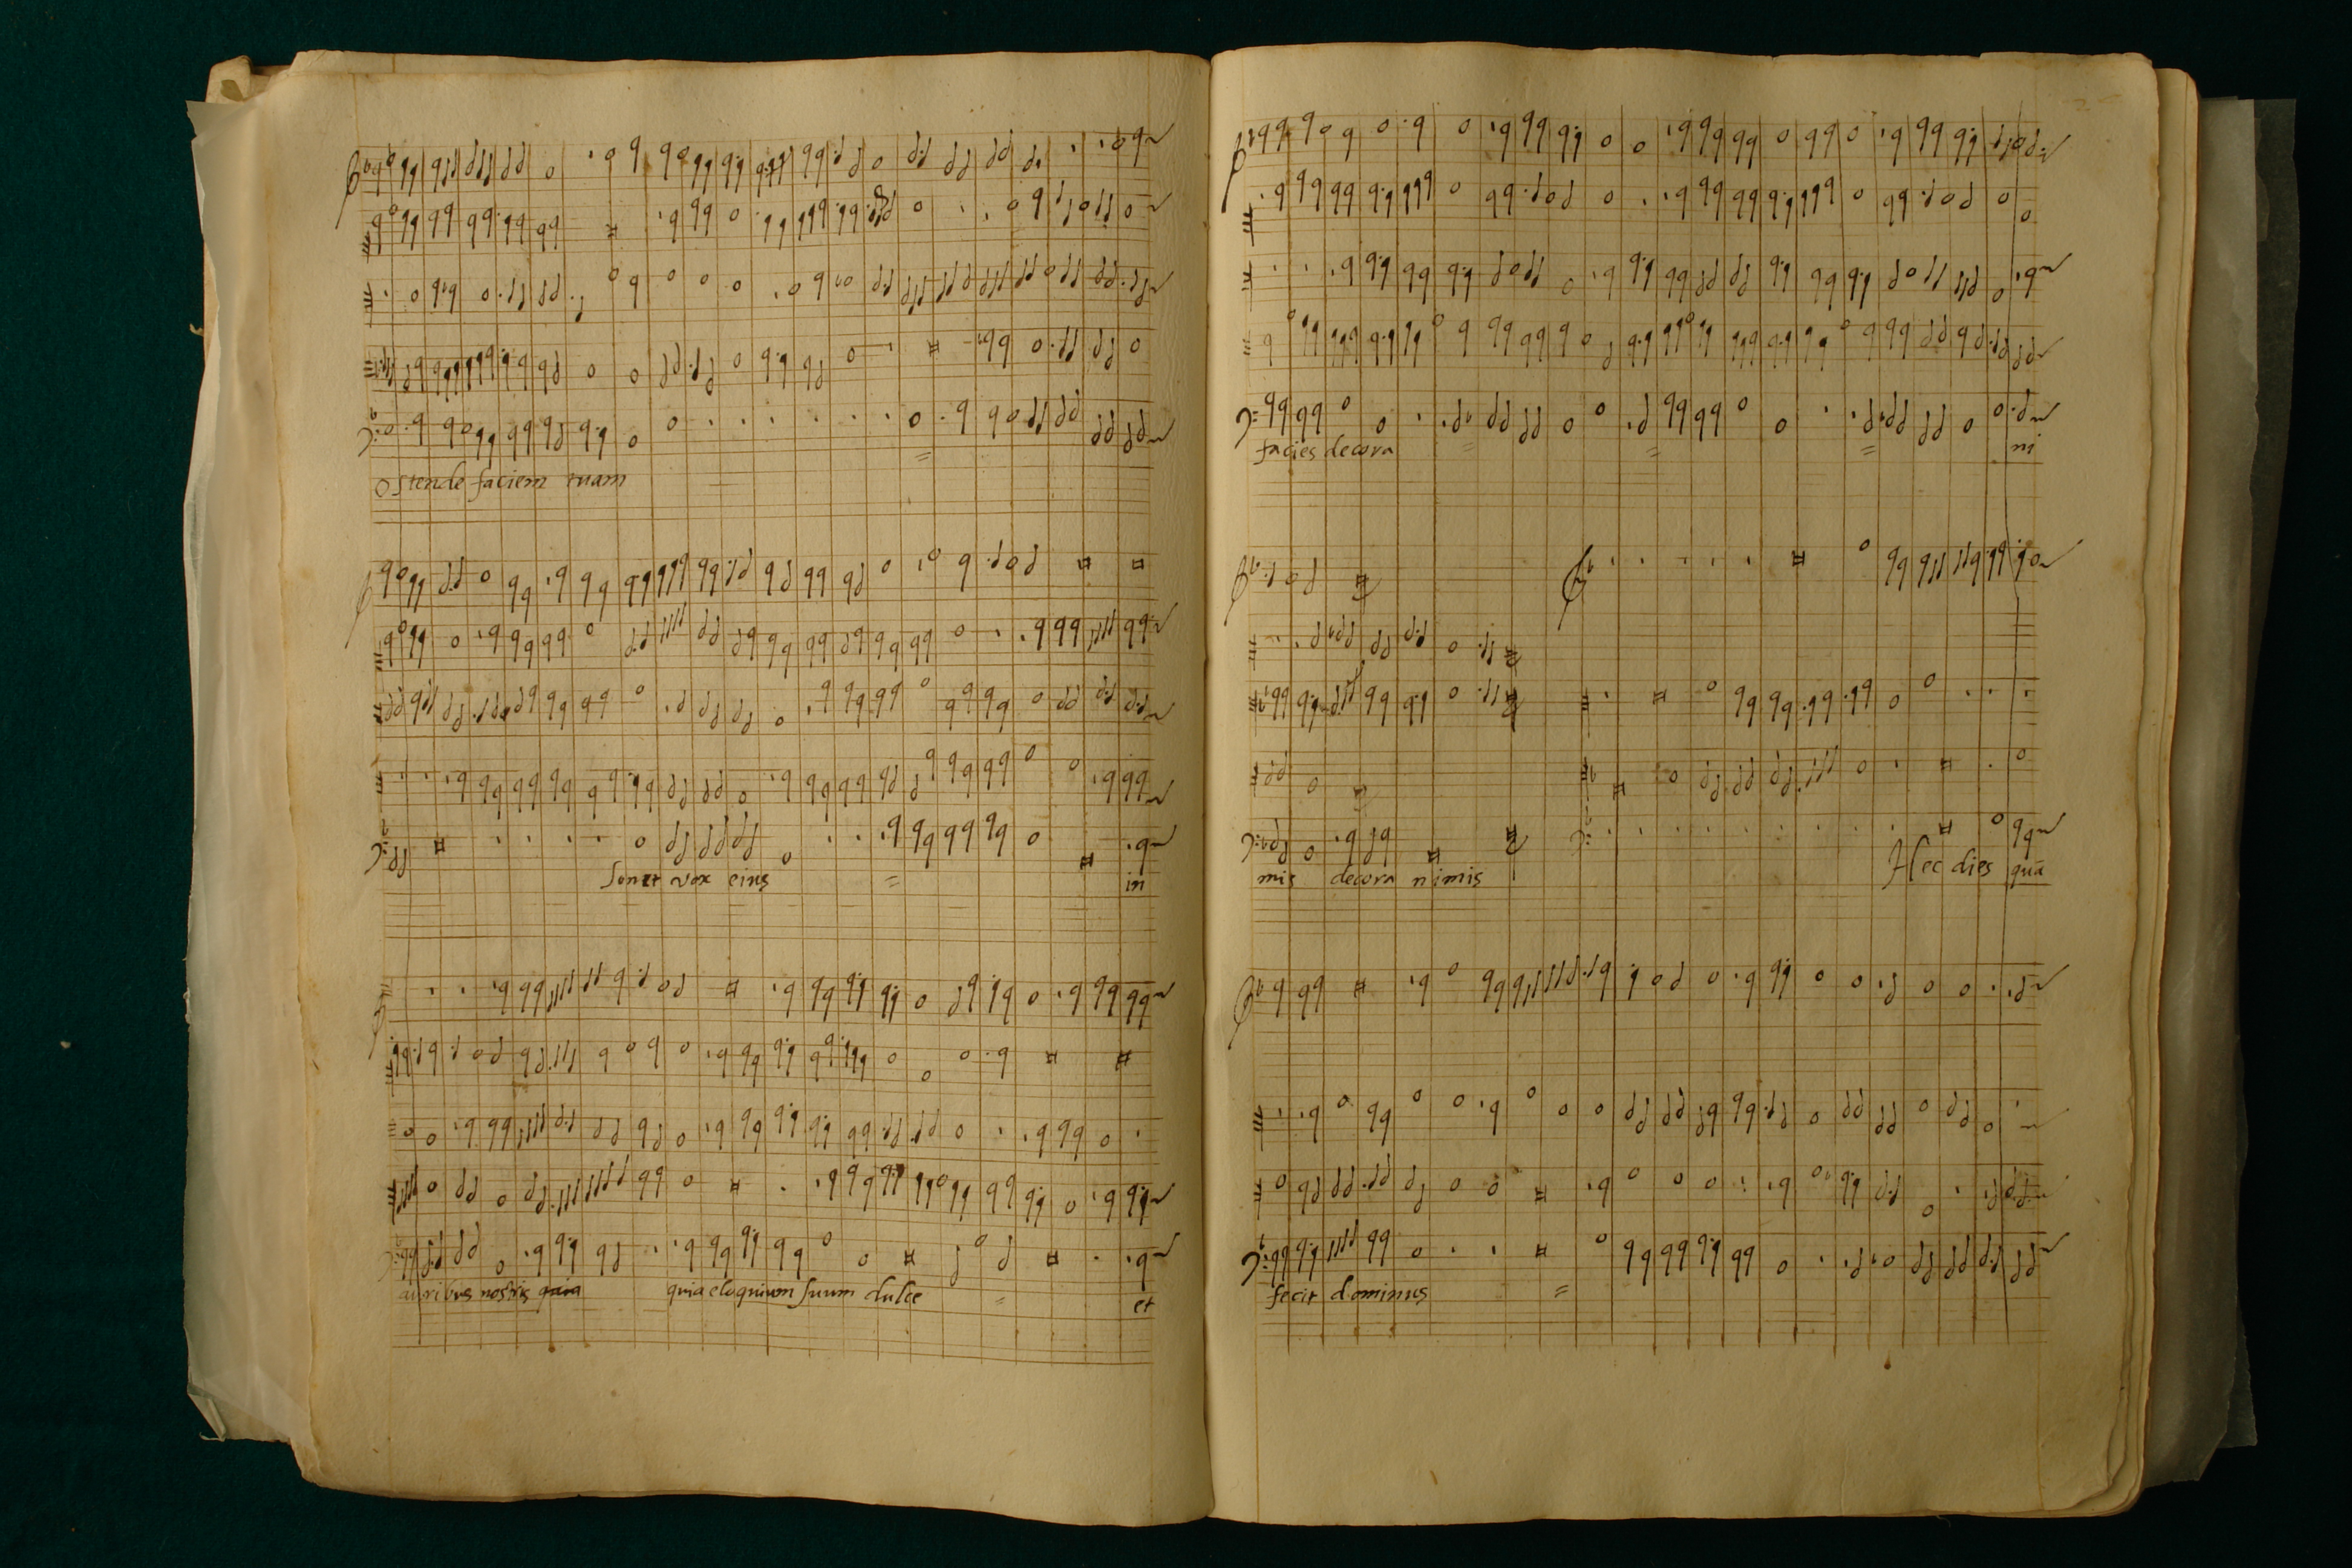 Ostende faciem tuam
Sonet vox eius = in
auribus nostris quia quia eloquium suum dulce = et
facies decora = = = ni
mis decora nimis Hec dies quã
fecit dominus =